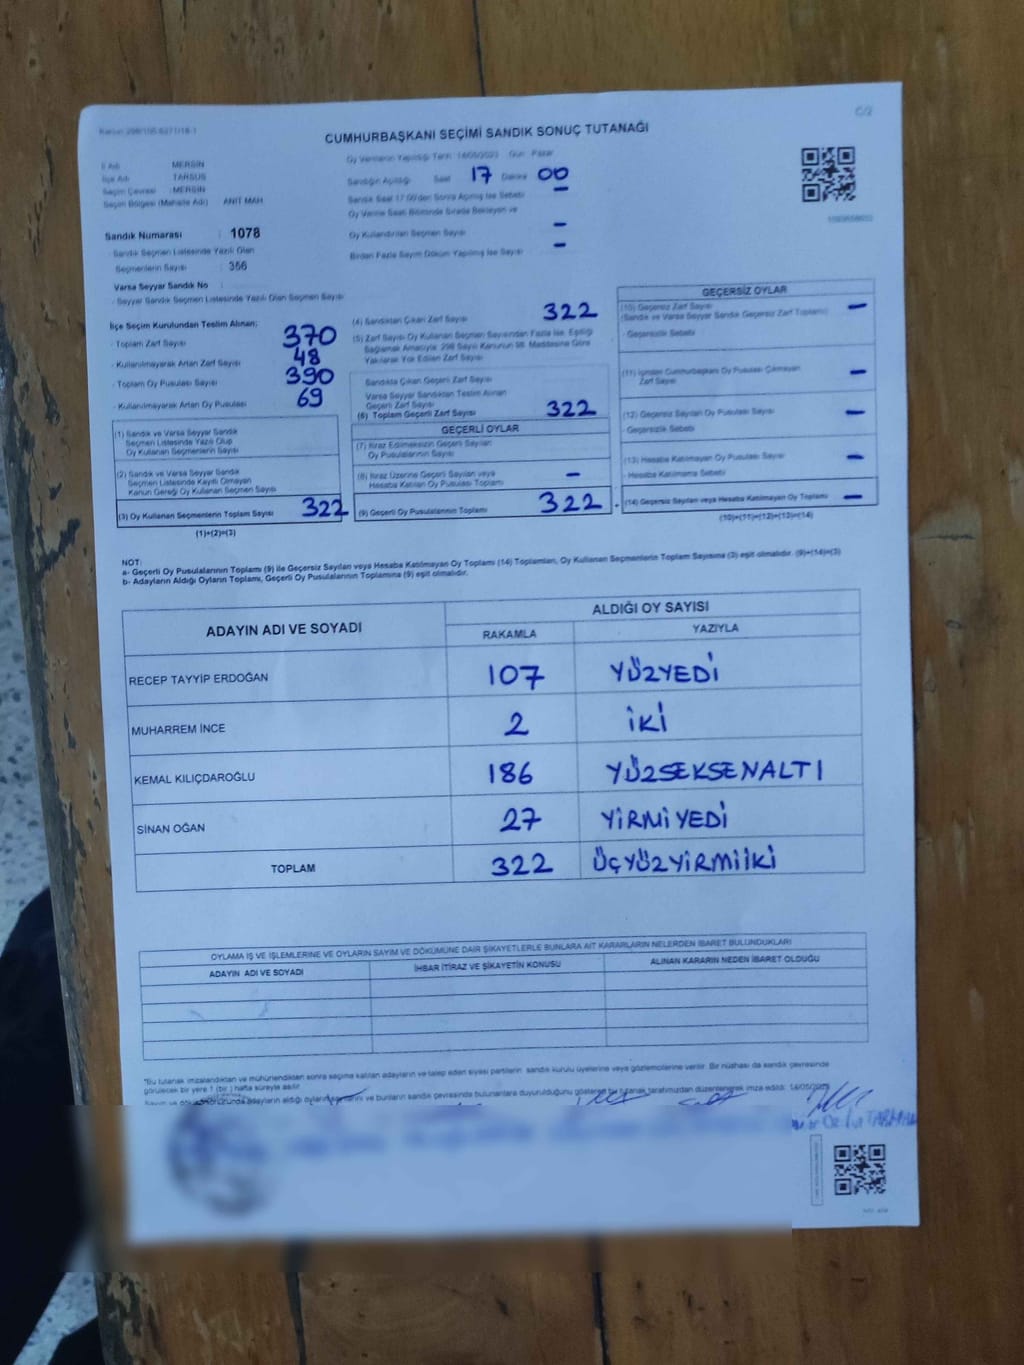 C/2
CUMHURBAŞKANI SEÇİMİ SANDIK SONUÇ TUTANAĞI
İl Adı : MERSİN
İlçe Adı : TARSUS
Seçim Çevresi : MERSİN
Seçim Bölgesi (Mahalle Adı) ANIT MAH.
Sandık Numarası : 1078
Sandık Seçmen Listesinde Yazılı Olan
Seçmenlerin Sayısı : 356
Varsa Seyyar Sandık No :
- Seyyar Sandık Seçmen Listesinde Yazılı Olan Seçmen Sayısı
Oy Vermenin Yapıldığı Tarih: 14/05/2023 Gün: Pazar
Sandığın Açıldığı Saat 17 Dakika 00
Sandık Saat 17.00'den Sonra Açılmış İse Sebebi –
Oy Verme Saati Bitiminde Sırada Bekleyen ve
Oy Kullandırılan Seçmen Sayısı –
Birden Fazla Sayım Döküm Yapılmış İse Sayısı –
İlçe Seçim Kurulundan Teslim Alınan;
- Toplam Zarf Sayısı 370
- Kullanılmayarak Artan Zarf Sayısı 48
- Toplam Oy Pusulası Sayısı 390
- Kullanılmayarak Artan Oy Pusulası 69
(1) Sandık ve Varsa Seyyar Sandık
Seçmen Listesinde Yazılı Olup
Oy Kullanan Seçmenlerin Sayısı
(2) Sandık ve Varsa Seyyar Sandık
Seçmen Listesinde Kayıtlı Olmayan
Kanun Gereği Oy Kullanan Seçmen Sayısı
(3) Oy Kullanan Seçmenlerin Toplam Sayısı 322
(1)+(2)=(3)
(4) Sandıktan Çıkan Zarf Sayısı 322
(5) Zarf Sayısı Oy Kullanan Seçmen Sayısından Fazla İse, Eşitliği
Sağlamak Amacıyla, 298 Sayılı Kanunun 98. Maddesine Göre
Yakılarak Yok Edilen Zarf Sayısı
Sandıkta Çıkan Geçerli Zarf Sayısı
Varsa Seyyar Sandıktan Teslim Alınan
Geçerli Zarf Sayısı
(6) Toplam Geçerli Zarf Sayısı 322
GEÇERLİ OYLAR
(7) İtiraz Edilmeksizin Geçerli Sayılan
Oy Pusulalarının Sayısı
(8) İtiraz Üzerine Geçerli Sayılan veya
Hesaba Katılan Oy Pusulası Toplamı –
(9) Geçerli Oy Pusulalarının Toplamı 322
GEÇERSİZ OYLAR
(10) Geçersiz Zarf Sayısı –
(Sandık ve Varsa Seyyar Sandık Geçersiz Zarf Toplamı)
- Geçersizlik Sebebi
(11) İçinden Cumhurbaşkanı Oy Pusulası Çıkmayan
Zarf Sayısı –
(12) Geçersiz Sayılan Oy Pusulası Sayısı –
- Geçersizlik Sebebi
(13) Hesaba Katılmayan Oy Pusulası Sayısı –
- Hesaba Katılmama Sebebi
+ (14) Geçersiz Sayılan veya Hesaba Katılmayan Oy Toplamı –
(10)+(11)+(12)+(13)=(14)
NOT:
a- Geçerli Oy Pusulalarının Toplamı (9) ile Geçersiz Sayılan veya Hesaba Katılmayan Oy Toplamı (14) Toplamları, Oy Kullanan Seçmenlerin Toplam Sayısına (3) eşit olmalıdır. (9)+(14)=(3)
b- Adayların Aldığı Oyların Toplamı, Geçerli Oy Pusulalarının Toplamına (9) eşit olmalıdır.
ADAYIN ADI VE SOYADI ALDIĞI OY SAYISI
RAKAMLA YAZIYLA
RECEP TAYYİP ERDOĞAN 107 YÜZYEDİ
MUHARREM İNCE 2 İKİ
KEMAL KILIÇDAROĞLU 186 YÜZSEKSENALTI
SİNAN OĞAN 27 YİRMİYEDİ
TOPLAM 322 ÜÇYÜZYİRMİİKİ
OYLAMA İŞ VE İŞLEMLERİNE VE OYLARIN SAYIM VE DÖKÜMÜNE DAİR ŞİKAYETLERLE BUNLARA AİT KARARLARIN NELERDEN İBARET BULUNDUKLARI
ADAYIN ADI VE SOYADI İHBAR İTİRAZ VE ŞİKAYETİN KONUSU ALINAN KARARIN NEDEN İBARET OLDUĞU
"Bu tutanak imzalandıktan ve mühürlendikten sonra seçime katılan adayların ve talep eden siyasi partilerin sandık kurulu üyelerine veya gözlemcilerine verilir. Bir nüshası da sandık çevresinde
görülecek bir yere 1 (bir) hafta süreyle asılır.
Sayım ve döküm sonunda adayların aldığı oyların sayılarını ve bunların sandık çevresinde bulunanlara duyurulduğunu gösteren bu tutanak tarafımızdan düzenlenerek imza edildi. 14/05/2023